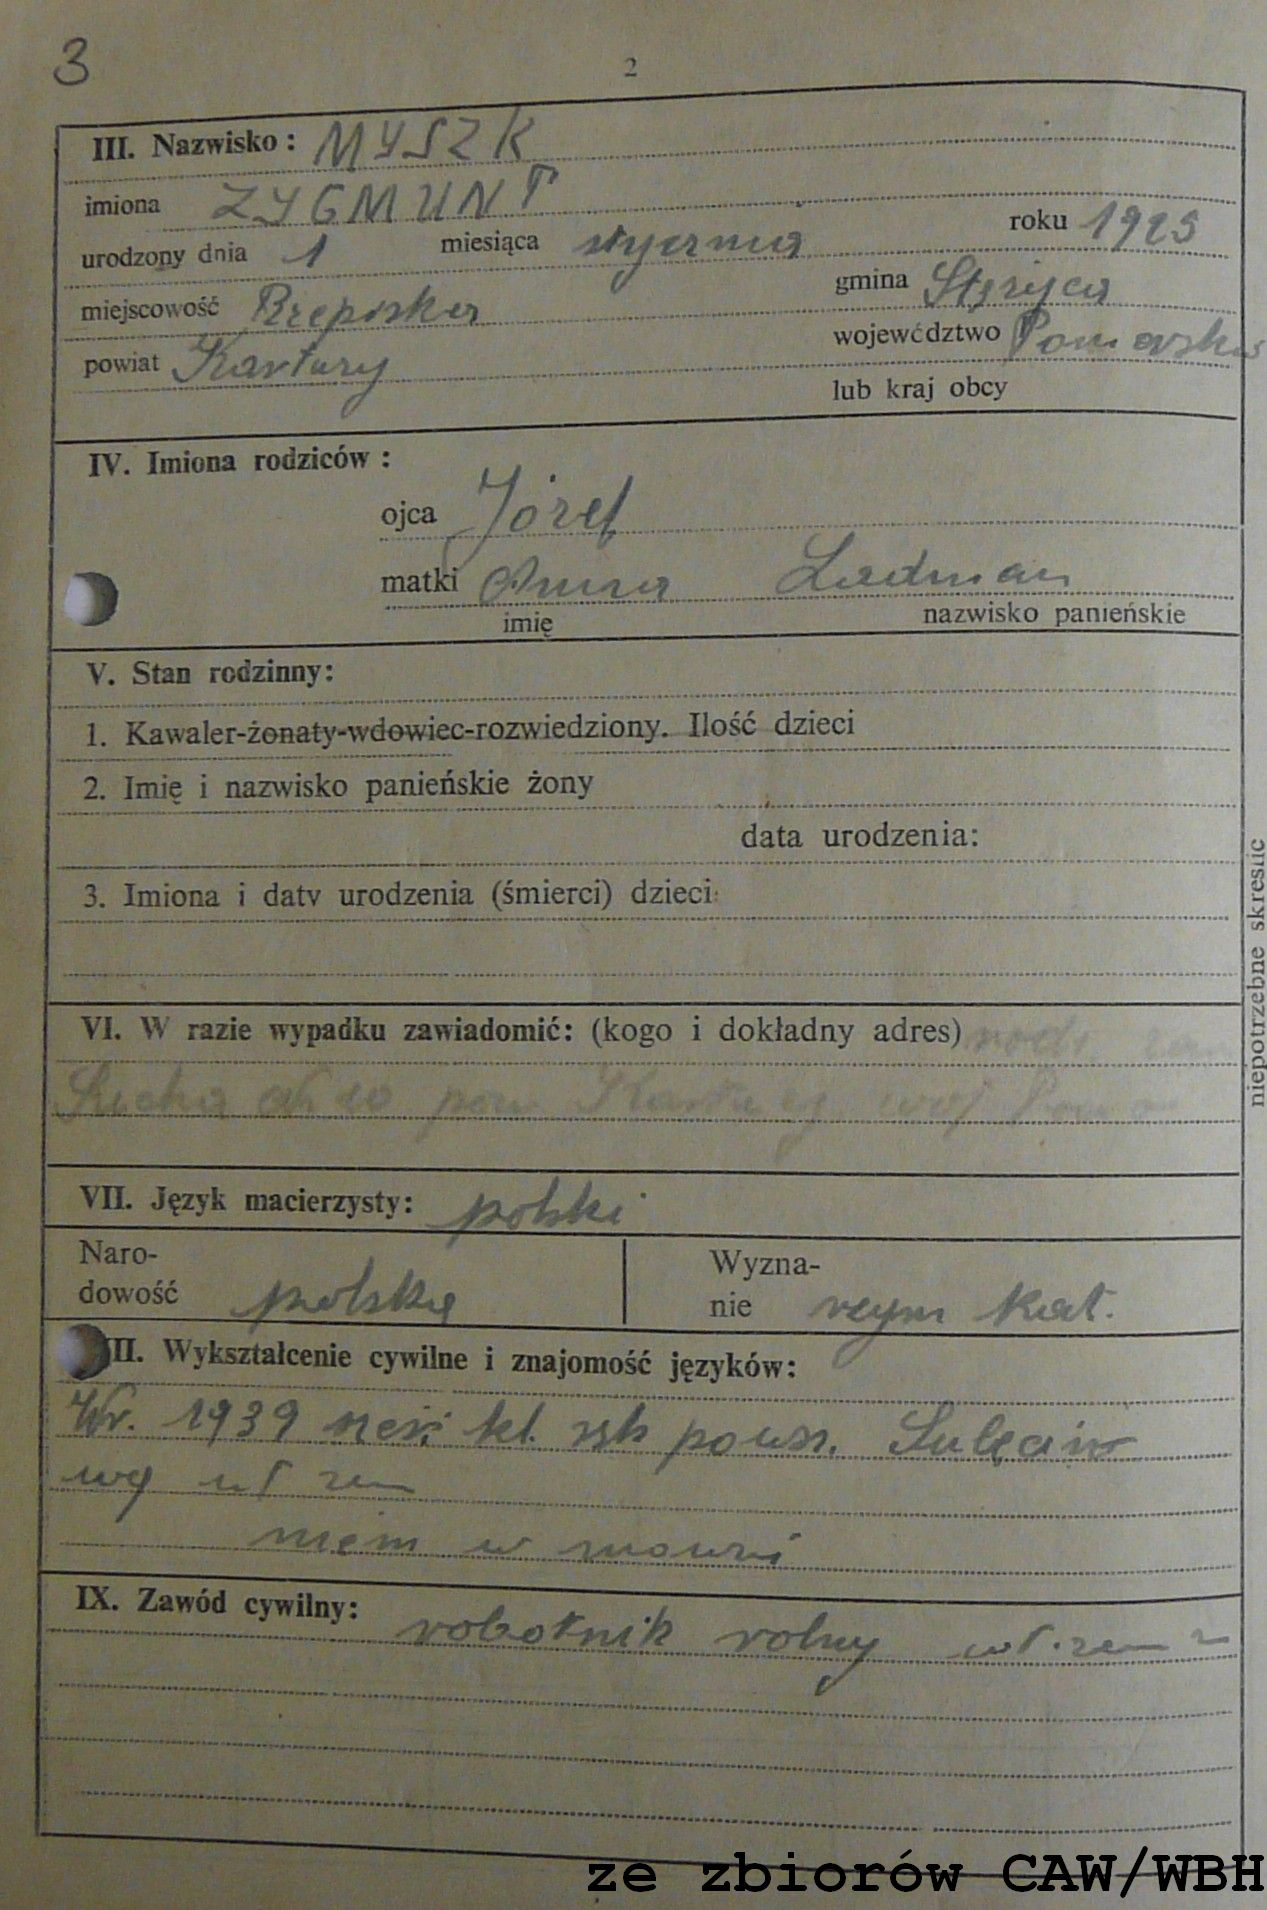 3
2
III. Nazwisko: MYSZK
imiona ZYGMUNT
urodzony dnia 1 miesiąca stycznia roku 1925
miejscowość Rzepiska gmina Stężyca
powiat Kartuzy województwo Pomorskie
lub kraj obcy
IV. Imiona rodziców:
ojca Józef
matki Anna Ladman
imię nazwisko panieńskie
V. Stan rodzinny:
1. Kawaler-żonaty-wdowiec-rozwiedziony. Ilość dzieci
2. Imię i nazwisko panieńskie żony
data urodzenia:
3. Imiona i daty urodzenia (śmierci) dzieci:
niepotrzebne skreślić
VI. W razie wypadku zawiadomić: (kogo i dokładny adres)
pow Kartuzy woj Pomor
VII. Język macierzysty: polski
Naro-
dowość polska
Wyzna-
nie rzym kat.
II. Wykształcenie cywilne i znajomość języków:
W r. 1939 sześć kl. szk powsz.
wg wł zezn
niem w mowie
IX. Zawód cywilny: robotnik rolny wł. zezn
ze zbiorów CAW/WBH